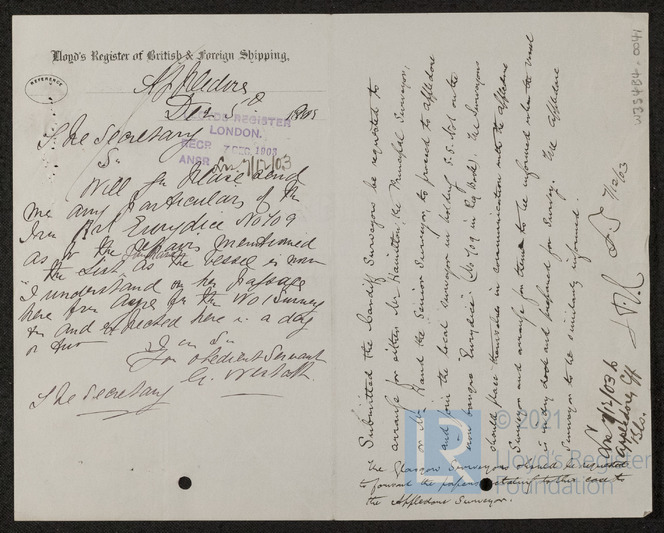 Lloyd's Register of British & Foreign Shipping,
REFERENCE
Appledore
Dec 5th 1903
LLOYDS REGISTER
LONDON.
RECD 7 DEC. 1903
ANSR 7/12/03
The Secretary
Sir
Will you please send
me any particulars of the
Iron Bk Eurydice No 709
as to the repairs mentioned
the List, as the vessel is now
I understand on her passage
here from for the No 1 Survey
and expected here in a day
or two
I am Sir
Your obedient Servant
The Secretary
W334B4-0041
Submitted the Cardiff Surveyors be requested to
arrange for either Mr Hamilton, the Principal Surveyor,
or Mr Hand the Senior Surveyor, to proceed to Appledore
and join the local Surveyor in holding S.S. No1 on the
iron barque "Eurydice" (No 709 in Rg Book). The Surveyors
should place themselves in communication with the Appledore
Surveyor and arrange for them to be informed when the vessel
is in dry dock and prepared for Survey. The Appledore
Surveyor to be similarly informed.
7/12/03
7/12/03
Appledore
The Glasgow Surveyors should be requested
to forward the papers relating to this case to
the Appledore Surveyor.
© 2021
Lloyd's Register
Foundation